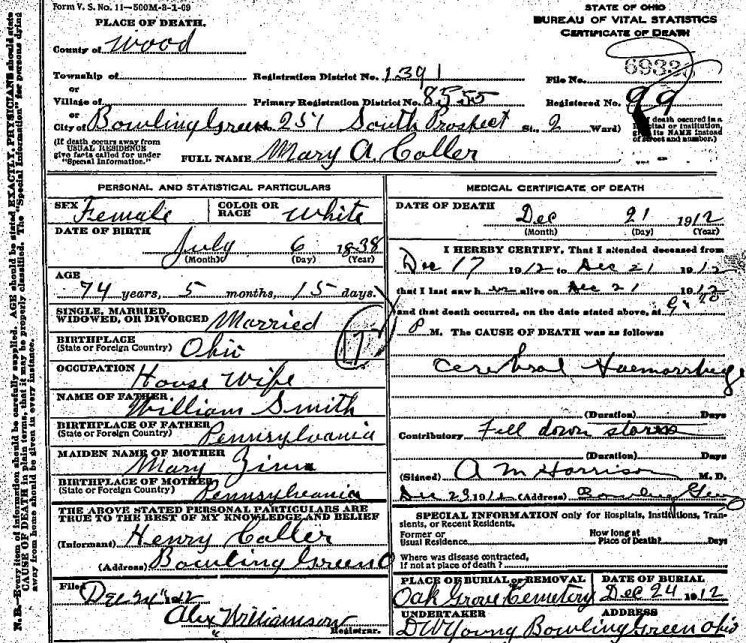 Form V. S. No. 11—500M-3-1-09
PLACE OF DEATH.
County of Wood
Township of
or
Village of
or
City of Bowling Green 251 South Prospect St., 2 Ward)
(If death occurs away from
USUAL RESIDENCE
give facts called for under
"Special Information.")
STATE OF OHIO
BUREAU OF VITAL STATISTICS
CERTIFICATE OF DEATH
Registration District No. 1391
File No. 69332
Primary Registration District No. 8555
Registered No. 99
death occurred in a
institution,
its NAME instead
of street and number.)
FULL NAME Mary A. Coller
PERSONAL AND STATISTICAL PARTICULARS
SEX Female
COLOR OR RACE White
DATE OF BIRTH
July 6 1838
(Month) (Day) (Year)
AGE
74 years, 5 months, 15 days.
SINGLE, MARRIED,
WIDOWED, OR DIVORCED Married
BIRTHPLACE
(State or Foreign Country) Ohio
OCCUPATION
House Wife
NAME OF FATHER
William Smith
BIRTHPLACE OF FATHER
(State or Foreign Country) Pennsylvania
MAIDEN NAME OF MOTHER
Mary
BIRTHPLACE OF MOTHER
(State or Foreign Country) Pennsylvania
THE ABOVE STATED PERSONAL PARTICULARS ARE
TRUE TO THE BEST OF MY KNOWLEDGE AND BELIEF
(Informant) Henry Coller
(Address) Bowling Green O
Filed Dec 24 1912
Alex Williamson
Registrar.
MEDICAL CERTIFICATE OF DEATH
DATE OF DEATH
Dec 21 1912
(Month) (Day) (Year)
I HEREBY CERTIFY, That I attended deceased from
Dec 17 1912 to Dec 21 1912
that I last saw h er alive on Dec 21 1912
and that death occurred, on the date stated above, at
P M. The CAUSE OF DEATH was as follows:
Cerebral Haemorrhage
(Duration) Days
Contributory Fell down stairs
(Duration) Days
(Signed) A M Harrison M. D.
Dec 23 1912 (Address) Bowling Green
SPECIAL INFORMATION only for Hospitals, Institutions, Tran-
sients, or Recent Residents.
Former or
Usual Residence
How long at
Place of Death? Days
Where was disease contracted,
if not at place of death?
PLACE OF BURIAL OR REMOVAL
Oak Grove Cemetery
DATE OF BURIAL
Dec 24 1912
UNDERTAKER
D W Young
ADDRESS
Bowling Green Ohio
N. B.—Every item of information should be carefully supplied. AGE should be stated EXACTLY. PHYSICIANS should state
CAUSE OF DEATH in plain terms, that it may be properly classified. The "Special Information" for persons dying
away from home should be given in every instance.